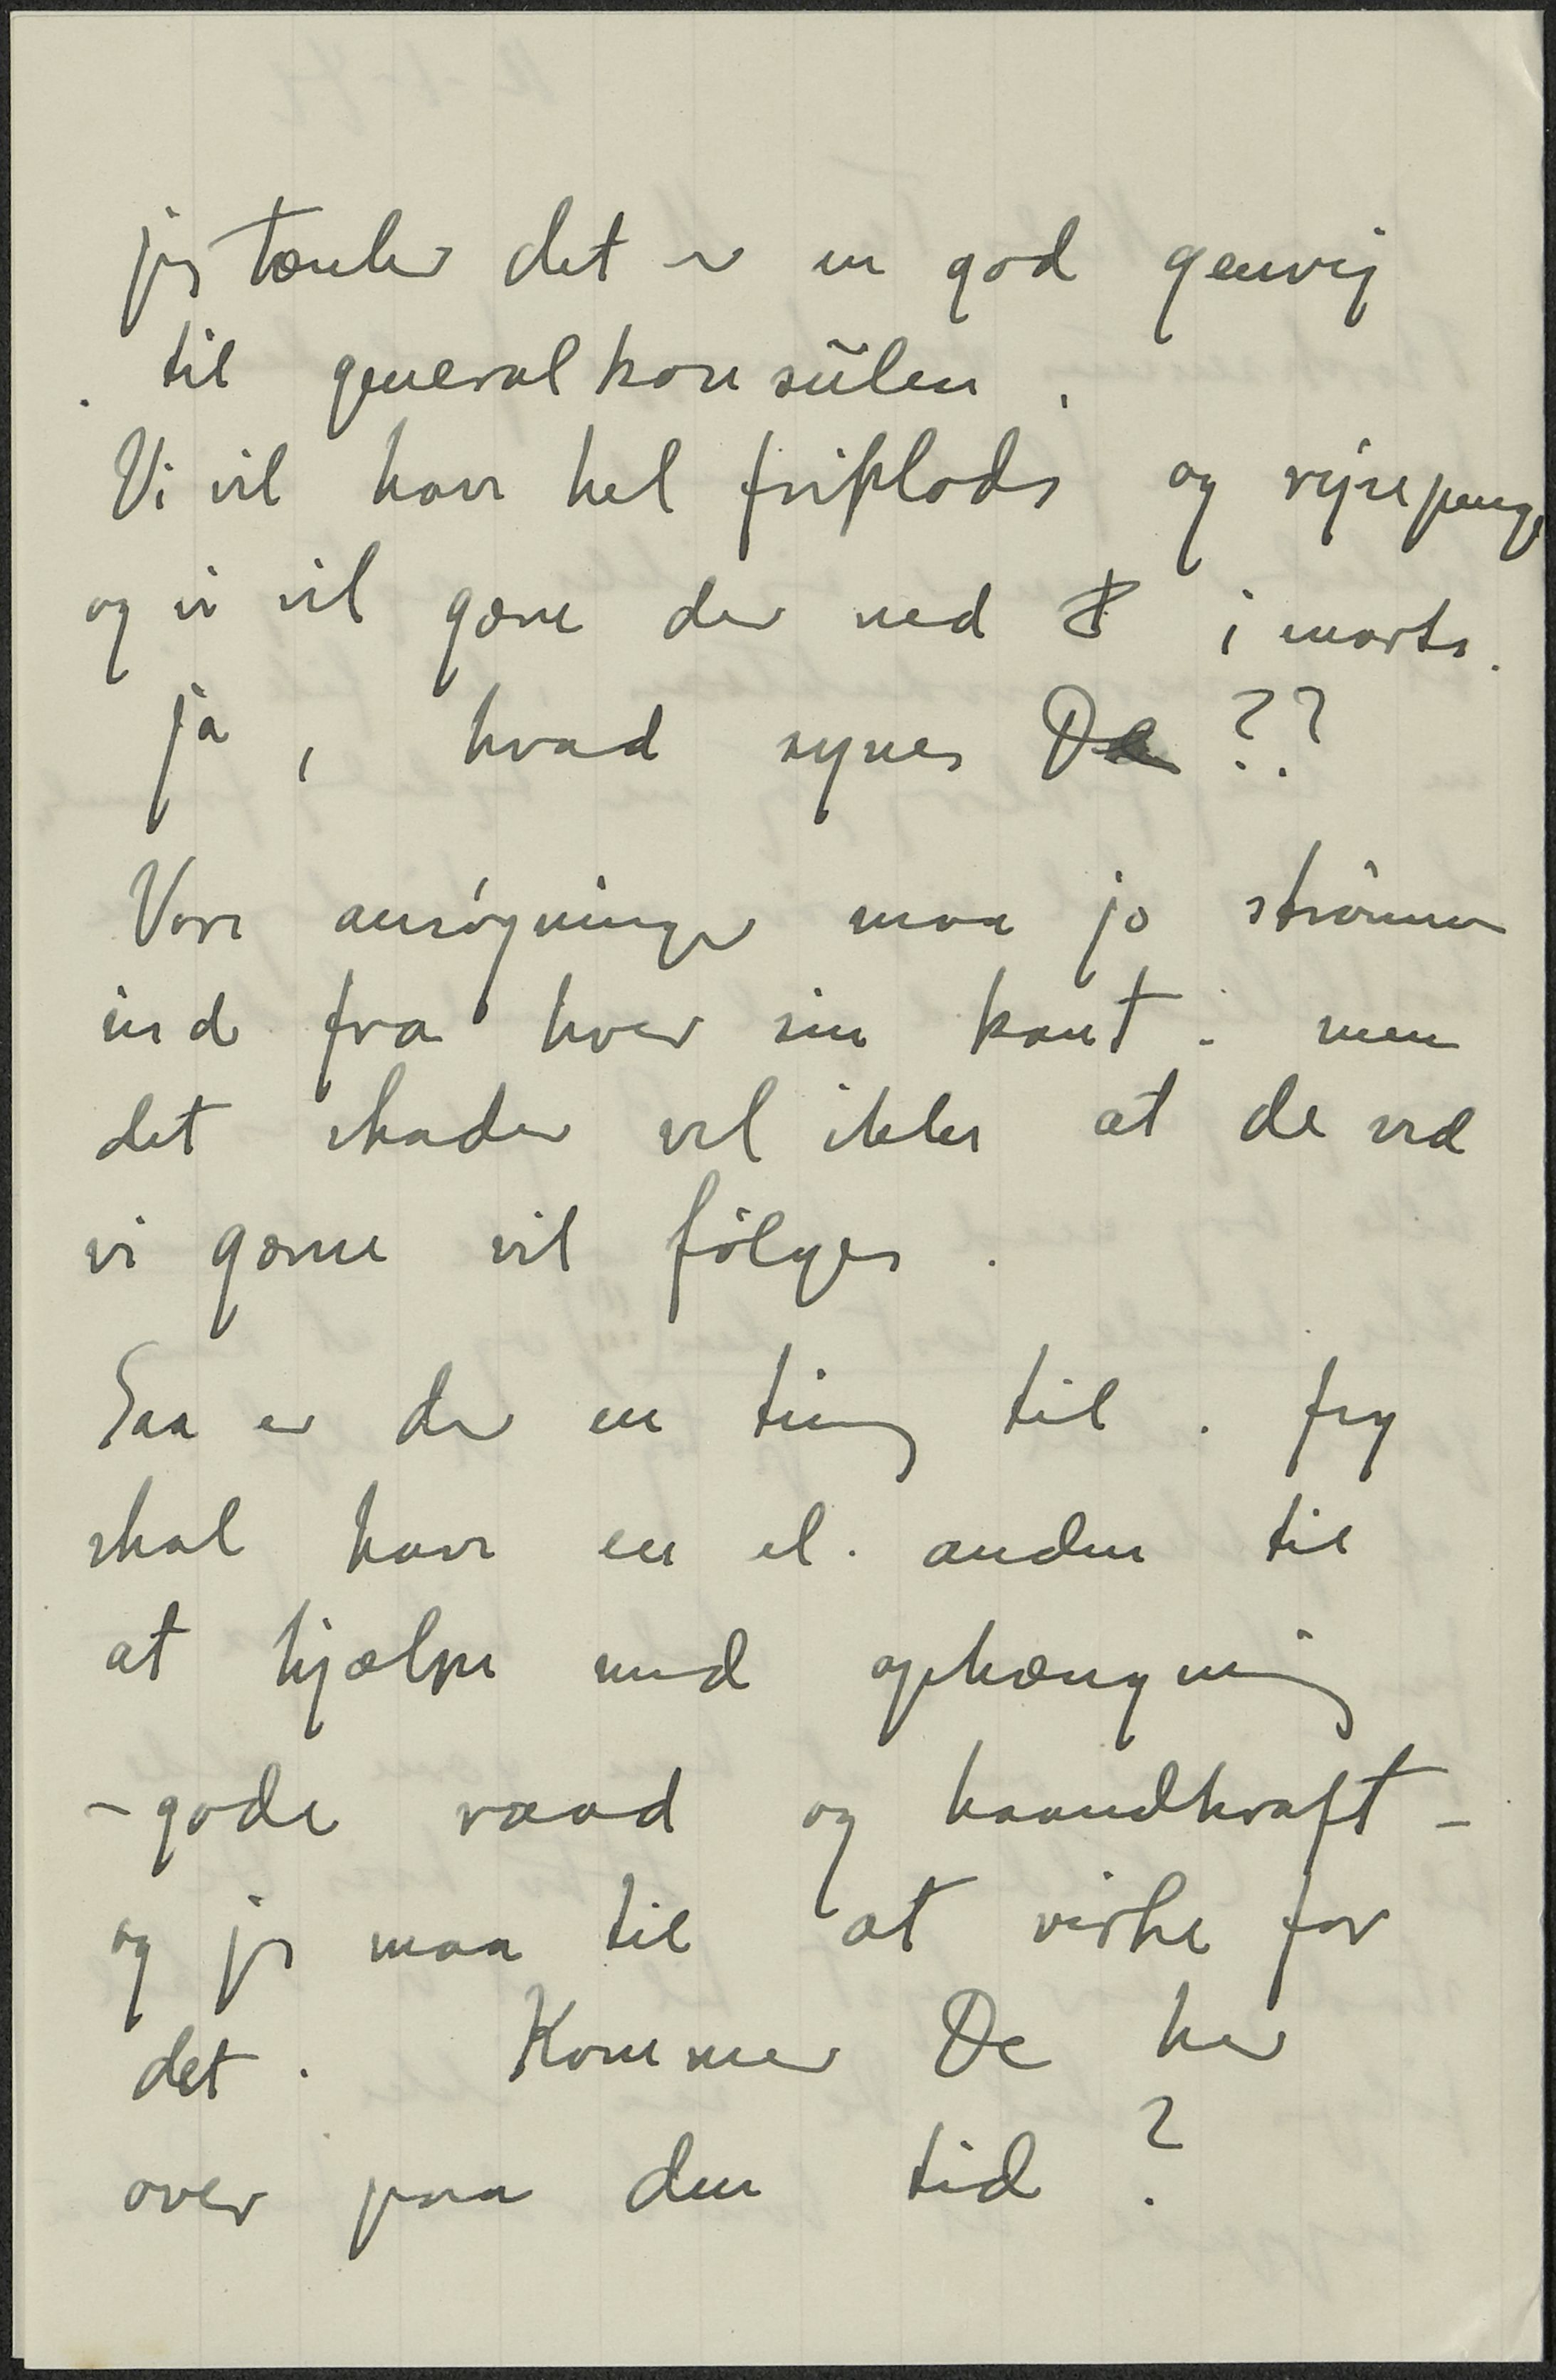 jeg tænker det er en god genvej
til generalkonsülen.
Vi vil have hel friplads og rejsepenge
og vi vil gærne der ned i marts.
ja, hvad synes De ??
Vore ansøgninger maa jo strömme
ind fra hver sin kant. men
det skader vel ikke at de ved
vi gærne vil fölges.
Saa er der en ting til. Jeg
skal have en el. anden til
at hjælpe med ophængning
– gode raad og haandkraft –
og jeg maa til at virke for
det. Kommer De her
over paa den tid?